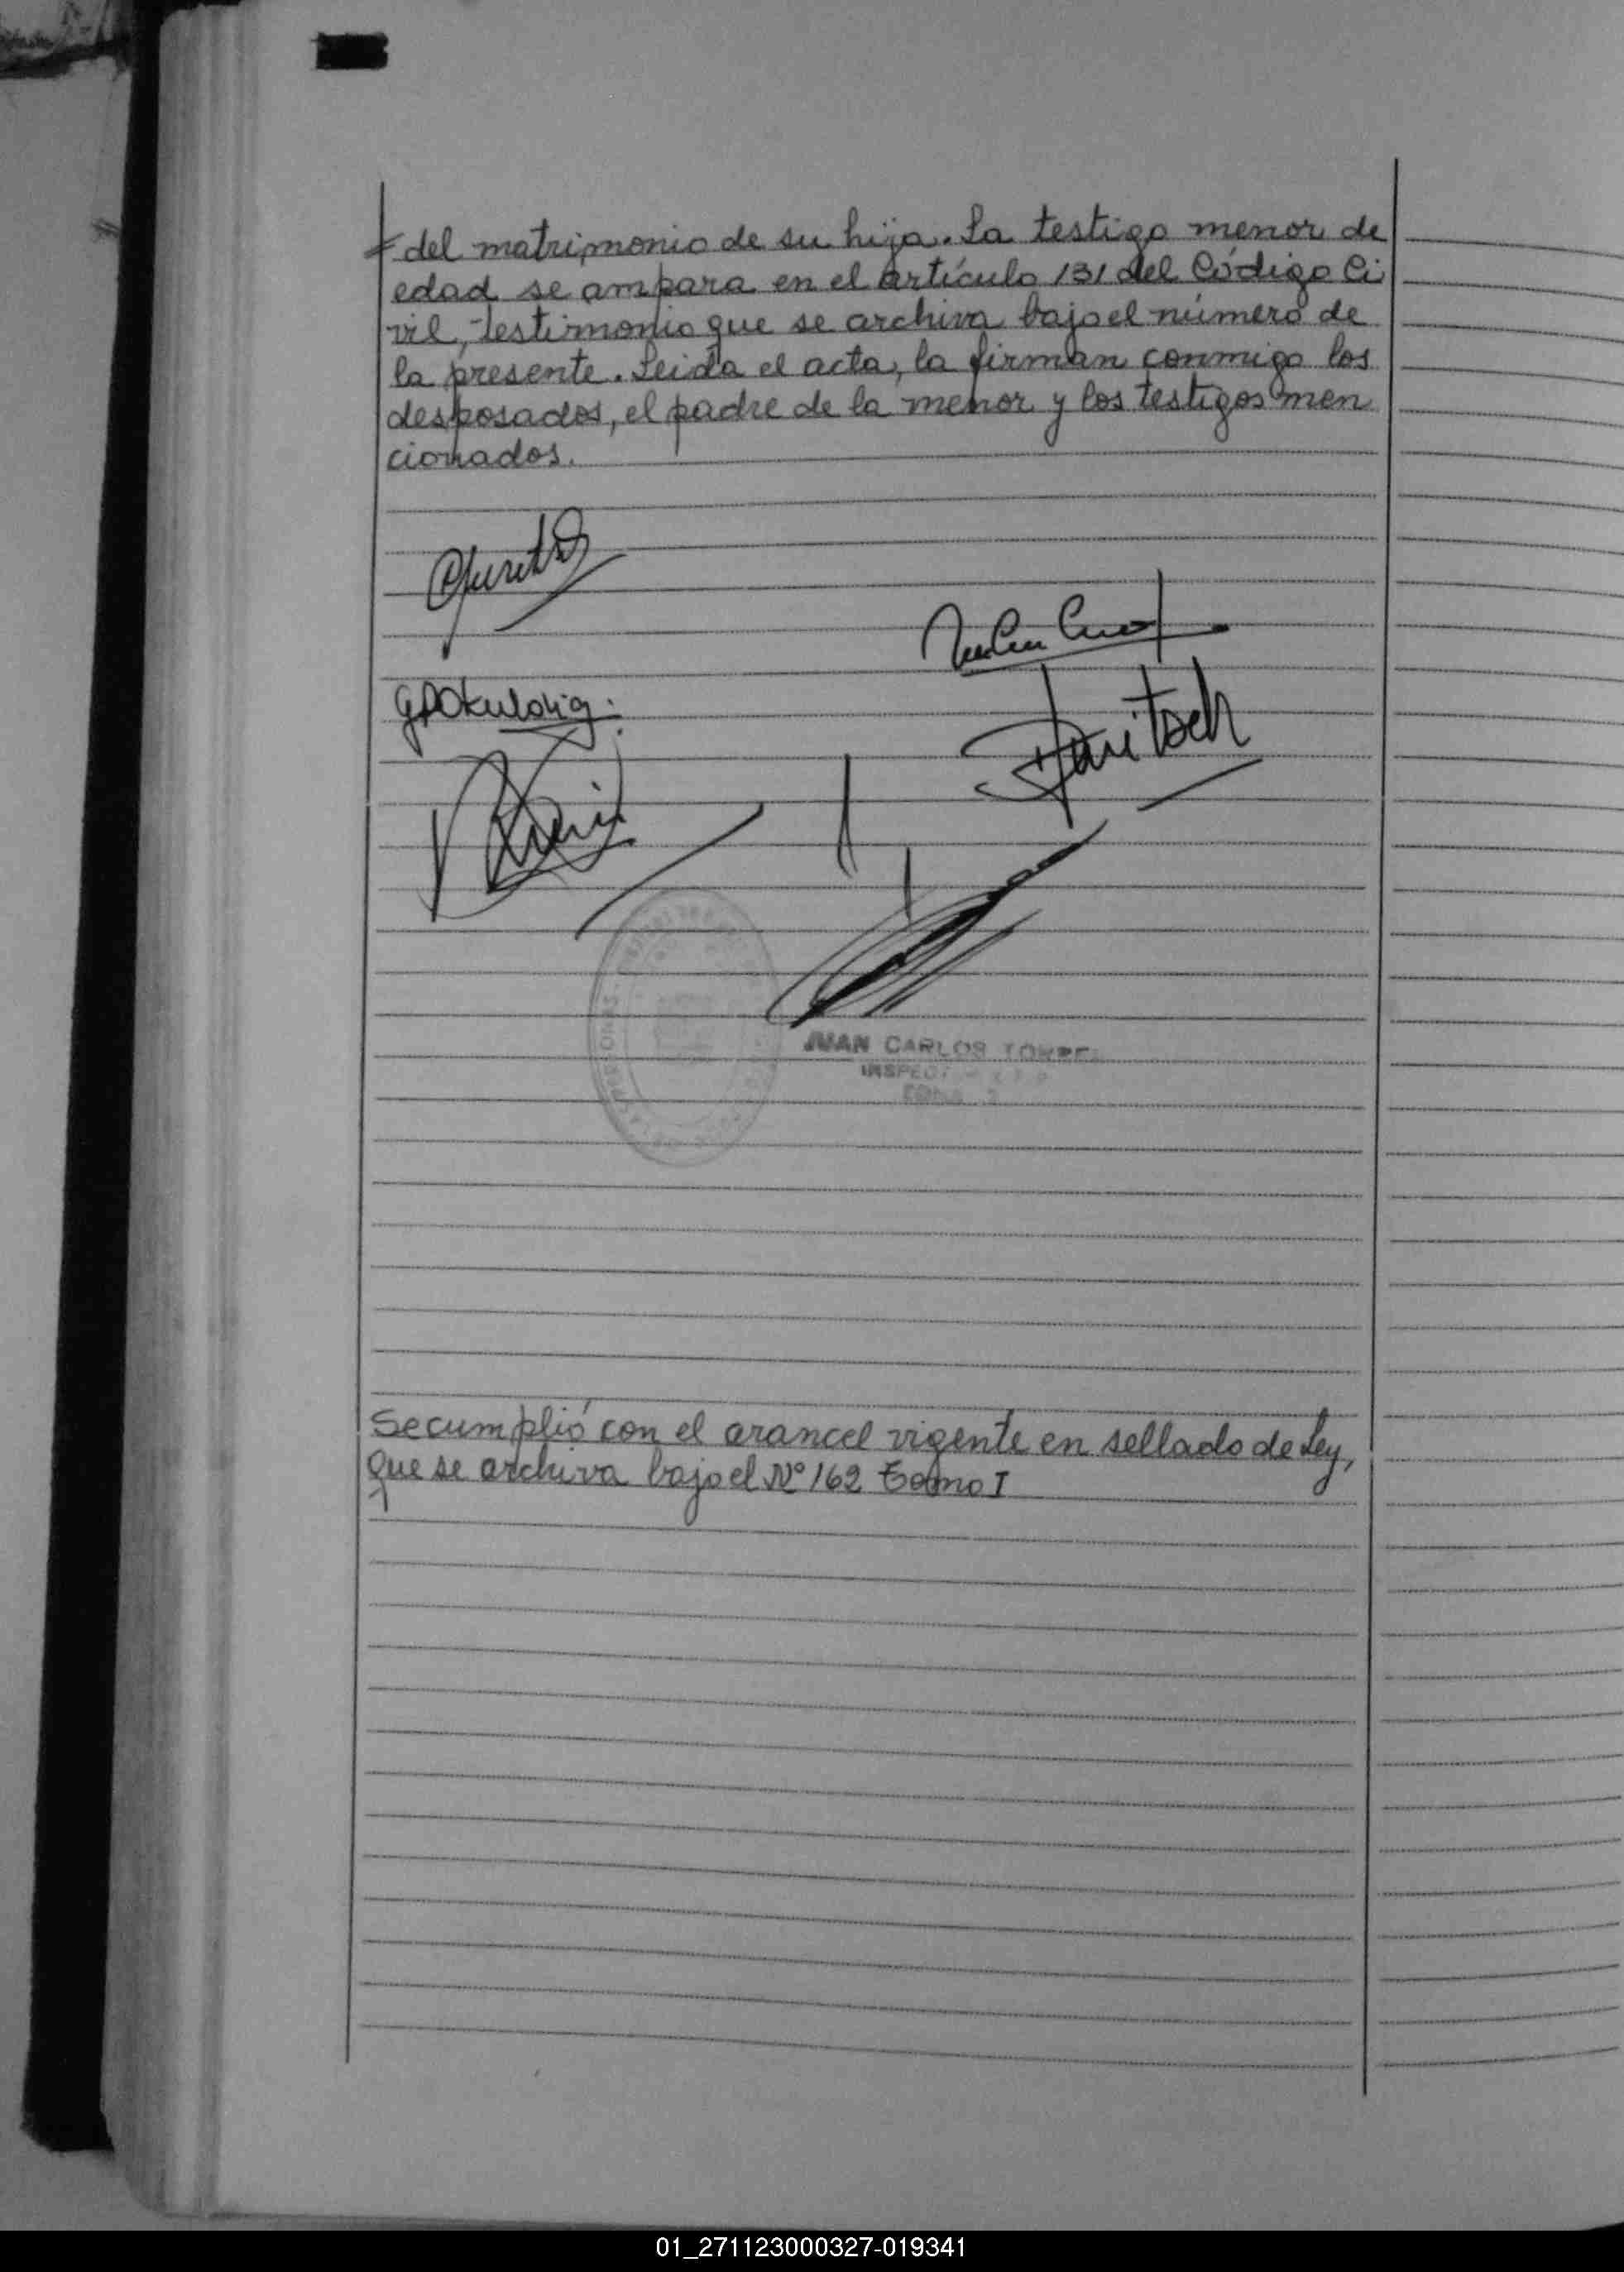 del matrimonio de su hija. La testigo menor de
edad se ampara en el artículo 131 del Código Ci
vil, testimonio que se archiva bajo el número de
la presente. Leida el acta, la firman conmigo los
desposados, el padre de la menor y los testigos men
cionados.
JUAN CARLOS
Se cumplió con el arancel vigente en sellado de Ley,
que se archiva bajo el Nº 162 Tomo I
01_271123000327-019341